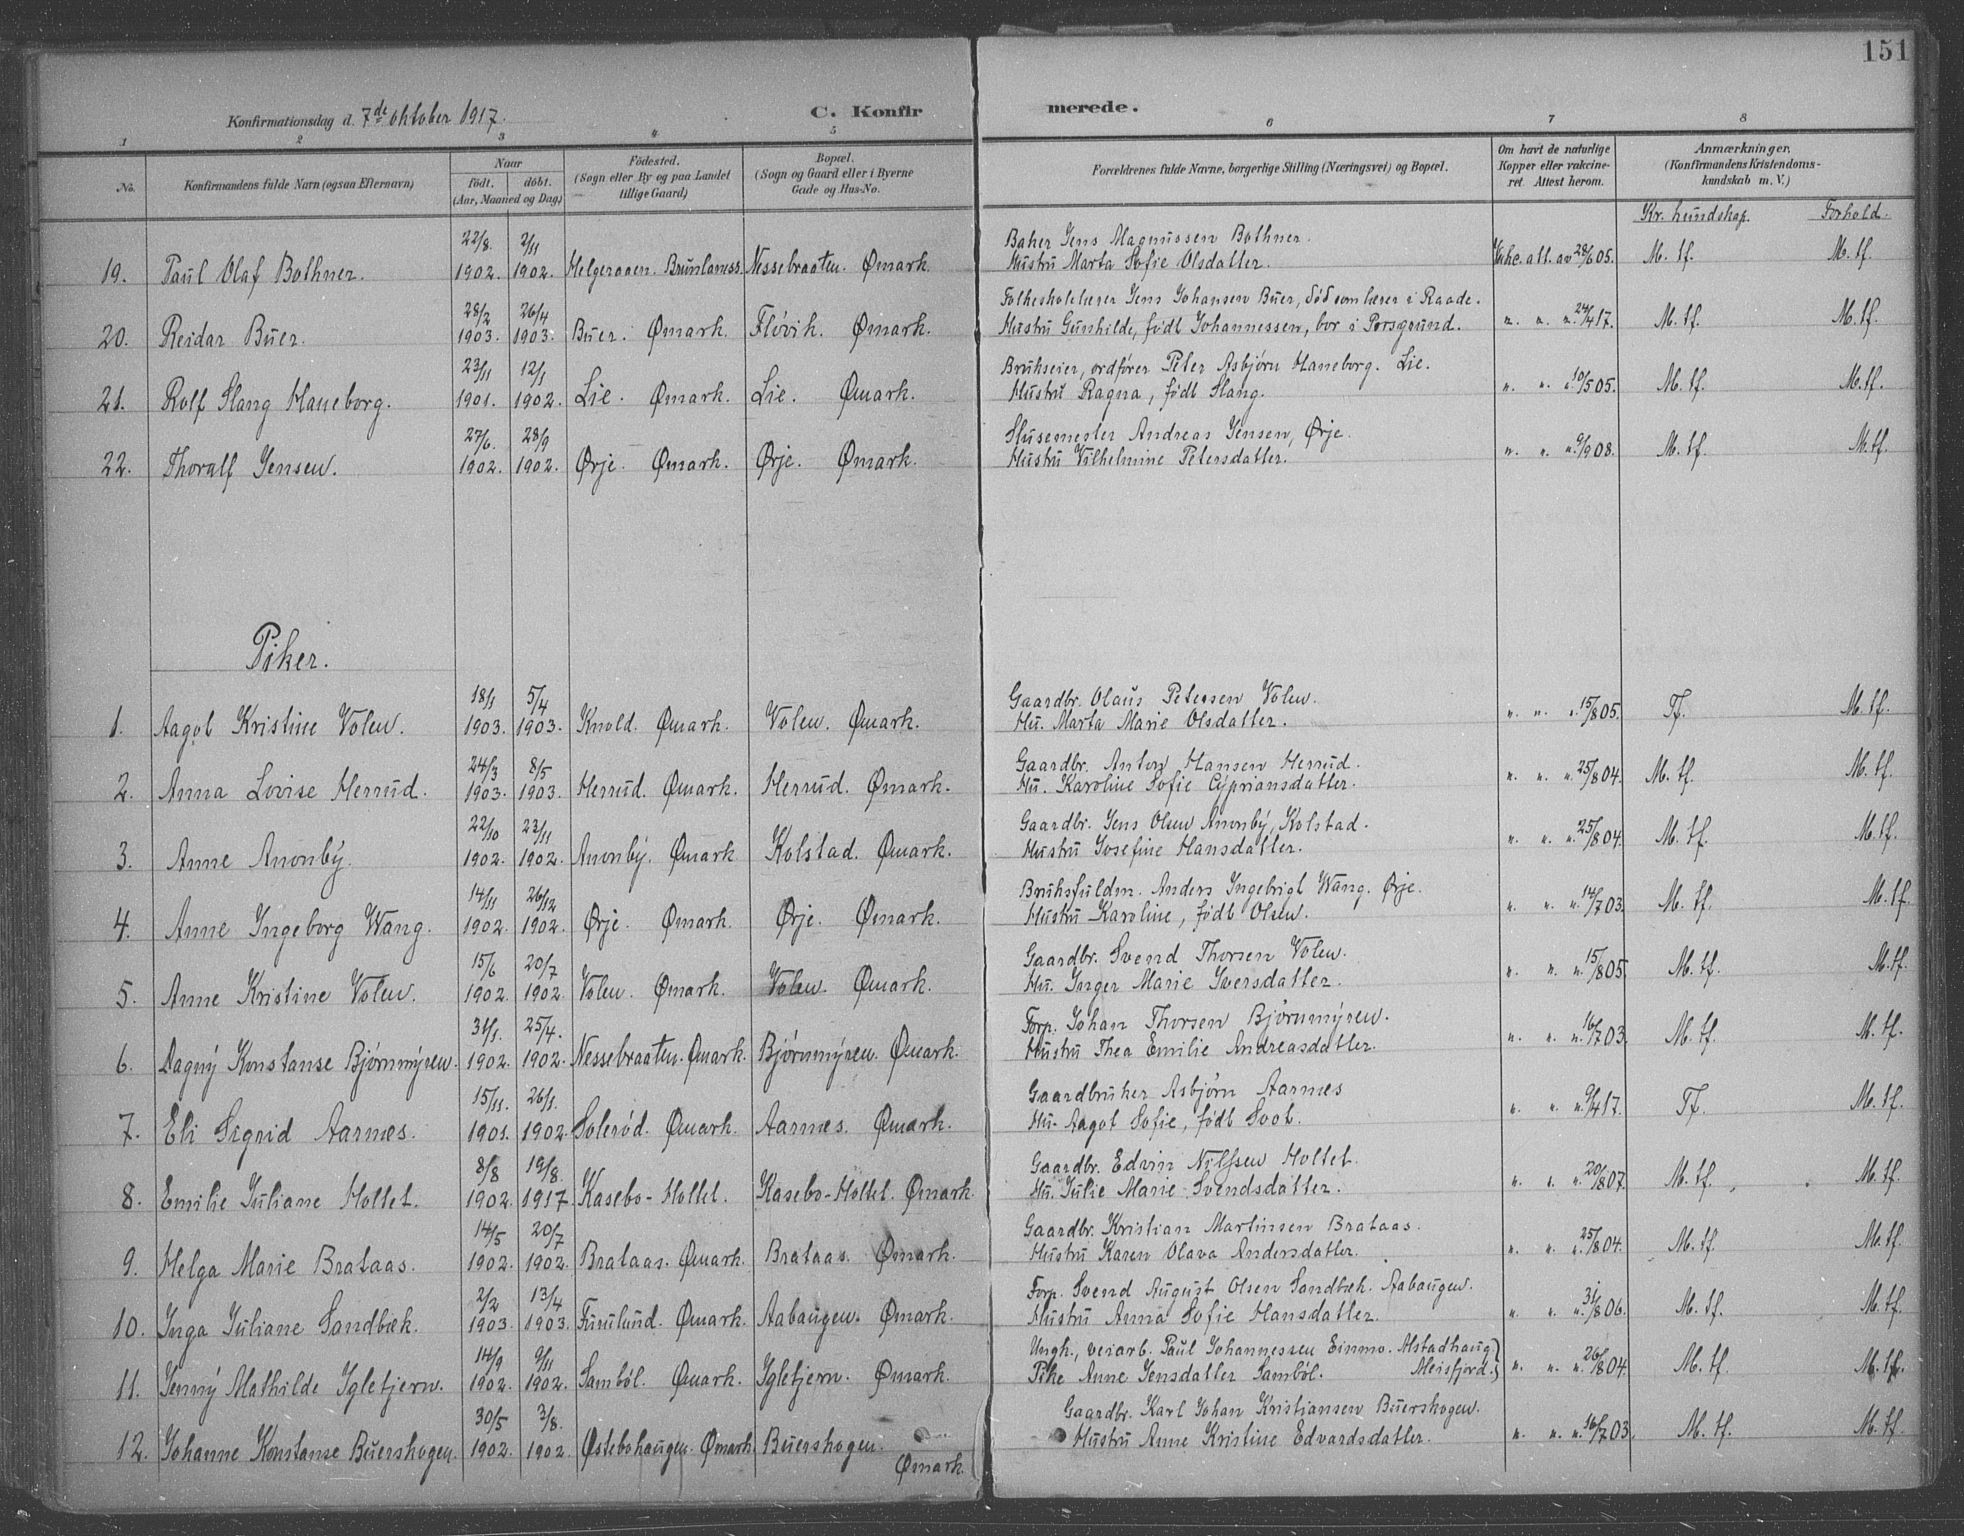 151
Konfirmationsdag d. 7de oktober 1917. C. Konfirmerede.
1 2 3 4 5 6 7 8
No. Konfirmandens fulde Navn (ogsaa Efternavn) Naar født. døbt. (Aar, Maaned og Dag) Fødested. (Sogn eller By og paa Landet tillige Gaard) Bopæl. (Sogn og Gaard eller i Byerne Gade og Hus-No. Forældrenes fulde Navne, borgerlige Stilling (Næringsvei) og Bopæl. Om havt de naturlige Kopper eller vakcineret. Attest herom. Anmærkninger. (Konfirmandens Kristendomskundskab m. V.)
Kr. kundskap. Forhold.
22/8. 2/11 Baker Jens Magnussen Bothner.
19. Paul Olaf Bothner. 1902. 1902. Helgeroaen. Brunlanæss Nessebraaten. Ømark. Hustru Marta Sofie Olsdatter. Vakc. att. av 28/6 05. M. tf. M. tf.
28/2 26/4 Folkeskolelærer Jens Johansen Buer, død som lærer i Raade.
20. Reidar Buer. 1903. 1903. Buer. Ømark. Fløvik. Ømark. Hustru Gunhilde, født Johannessen, bor i Porsgrund. " " " 24/4 17. M. tf. M. tf.
23/11 12/1 Brukseier, ordfører Peter Asbjørn Haneborg. Lie.
21. Rolf Stang Haneborg. 1901. 1902. Lie. Ømark. Lie. Ømark. Hustru Ragna, født Stang. " " " 10/5 05. M. tf. M. tf.
27/6. 28/9 Slusemester Andreas Jensen, Ørje.
22. Thoralf Jensen. 1902. 1902. Ørje. Ømark. Ørje. Ømark. Hustru Vilhelmine Petersdatter. " " " 9/9 08. M. tf. M. tf.
Piker.
18/1 5/4 Gaardbr. Olaus Petersen Volen.
1. Aagot Kristine Volen. 1903. 1903. Knold. Ømark. Volen. Ømark. Hu. Marta Marie Olsdatter. " " " 15/8 05. Tf. M. tf.
24/3 8/5 Gaardbr. Anton Hansen Herrud.
2. Anna Lovise Herrud. 1903. 1903. Herrud. Ømark. Herrud. Ømark. Hu. Karoline Sofie Cypriansdatter. " " " 25/8 04. M. tf. M. tf.
22/10 23/11 Gaardbr. Jens Olsen Anonby, Kolstad.
3. Anne Anonby. 1902. 1902. Anonby. Ømark Kolstad. Ømark. Hustru Josefine Hansdatter. " " " 25/8 04. M. tf. M. tf.
14/11 26/12 Bruksfuldm. Anders Ingebrigt Wang. Ørje.
4. Anne Ingeborg Wang. 1902. 1902. Ørje. Ømark. Ørje. Ømark. Hustru Karoline, født Olsen. " " " 14/7 03. M. tf. M. tf.
15/6 20/7 Gaardbr. Svend Thorsen Volen.
5. Anne Kristine Volen. 1902. 1902. Volen. Ømark. Volen. Ømark. Hu. Inger Marie Iversdatter. " " " 15/8 05. M. tf. M. tf.
31/1. 25/4. Forp. Johan Thorsen Bjørnmyren.
6. Dagny Konstanse Bjørnmyren. 1902. 1902. Nessebraaten. Ømark. Bjørnmyren. Ømark. Hustru Thea Emilie Andreasdatter. " " " 16/7 03. M. tf. M. tf.
15/11. 26/1. Gaardbruker Asbjørn Aarnes
7. Eli Sigrid Aarnes. 1901. 1902. Solerød. Ømark. Aarnes. Ømark. Hu. Aagot Sofie, født Soot. " " " 9/4 17. Tf. M. tf.
8/8 19/8. Gaardbr. Edvin Nilssen Holtet.
8. Emilie Juliane Holtet. 1902. 1917. Kasebo-Holtet. Kasebo-Holtet. Ømark. Hu. Julie Marie Svendsdatter. " " " 20/8 07. M. tf. M. tf.
14/5 20/7 Gaardbr. Kristian Martinsen Brataas.
9. Helga Marie Brataas. 1902. 1902. Brataas. Ømark. Brataas. Ømark. Hustru Karen Olava Andersdatter. " " " 25/8 04. M. tf. M. tf.
2/2 13/4 Forp. Svend August Olsen Sandbæk. Aabaugen.
10. Inga Juliane Sandbæk. 1903. 1903. Furulund. Ømark. Aabaugen. Ømark. Hustru Anna Sofie Hansdatter. " " " 31/8 06. M. tf. M. tf.
14/9 9/11 Ungk., veiarb. Paul Johannessen Einmo. Alstadhaug
11. Jenny Mathilde Igletjern. 1902. 1902. Sambøl. Ømark. Igletjern. Ømark. Pike Anne Jensdatter Sambøl. Meisfjord. " " " 26/8 04. M. tf. M. tf.
30/5 3/8. Gaardbr. Karl Johan Kristiansen Buerskogen.
12. Johanne Konstanse Buerskogen. 1902. 1902. Østebohaugen. Ømark. Buerskogen. Ømark. Hustru Anne Kristine Edvardsdatter. " " " 16/7 03. M. tf. M. tf.